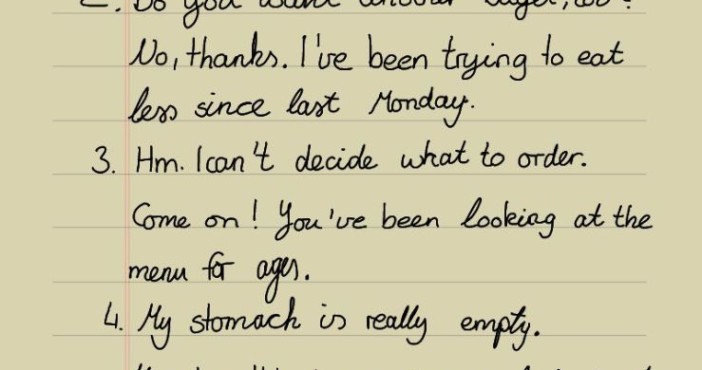 2. Do you want another
No, thanks. I've been trying to eat
less since last Monday.
3. Hm. I can't decide what to order.
Come on! You've been looking at the
menu for ages.
4. My stomach is really empty.